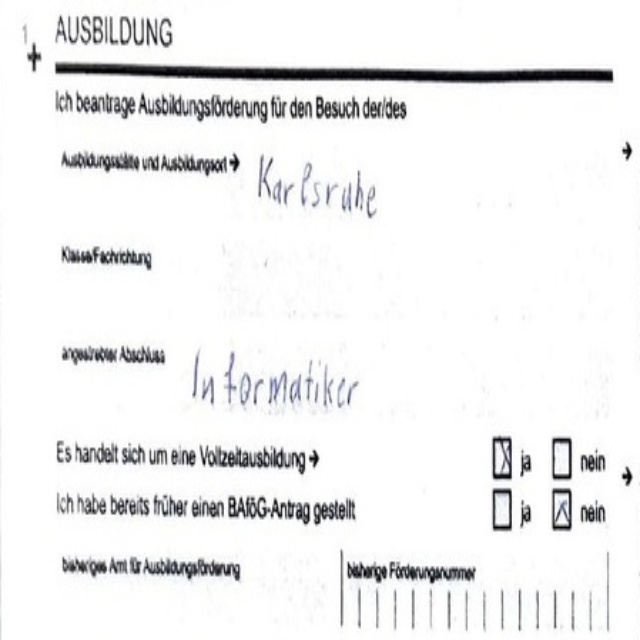 1 AUSBILDUNG
Ich beantrage Ausbildungsförderung für den Besuch der/des
Ausbildungsstätte und Ausbildungsort → Karlsruhe
Klasse/Fachrichtung
angestrebter Abschluss Informatiker
Es handelt sich um eine Vollzeitausbildung → ja nein
Ich habe bereits früher einen BAföG-Antrag gestellt ja nein
bisheriges Amt für Ausbildungsförderung bisherige Förderungsnummer